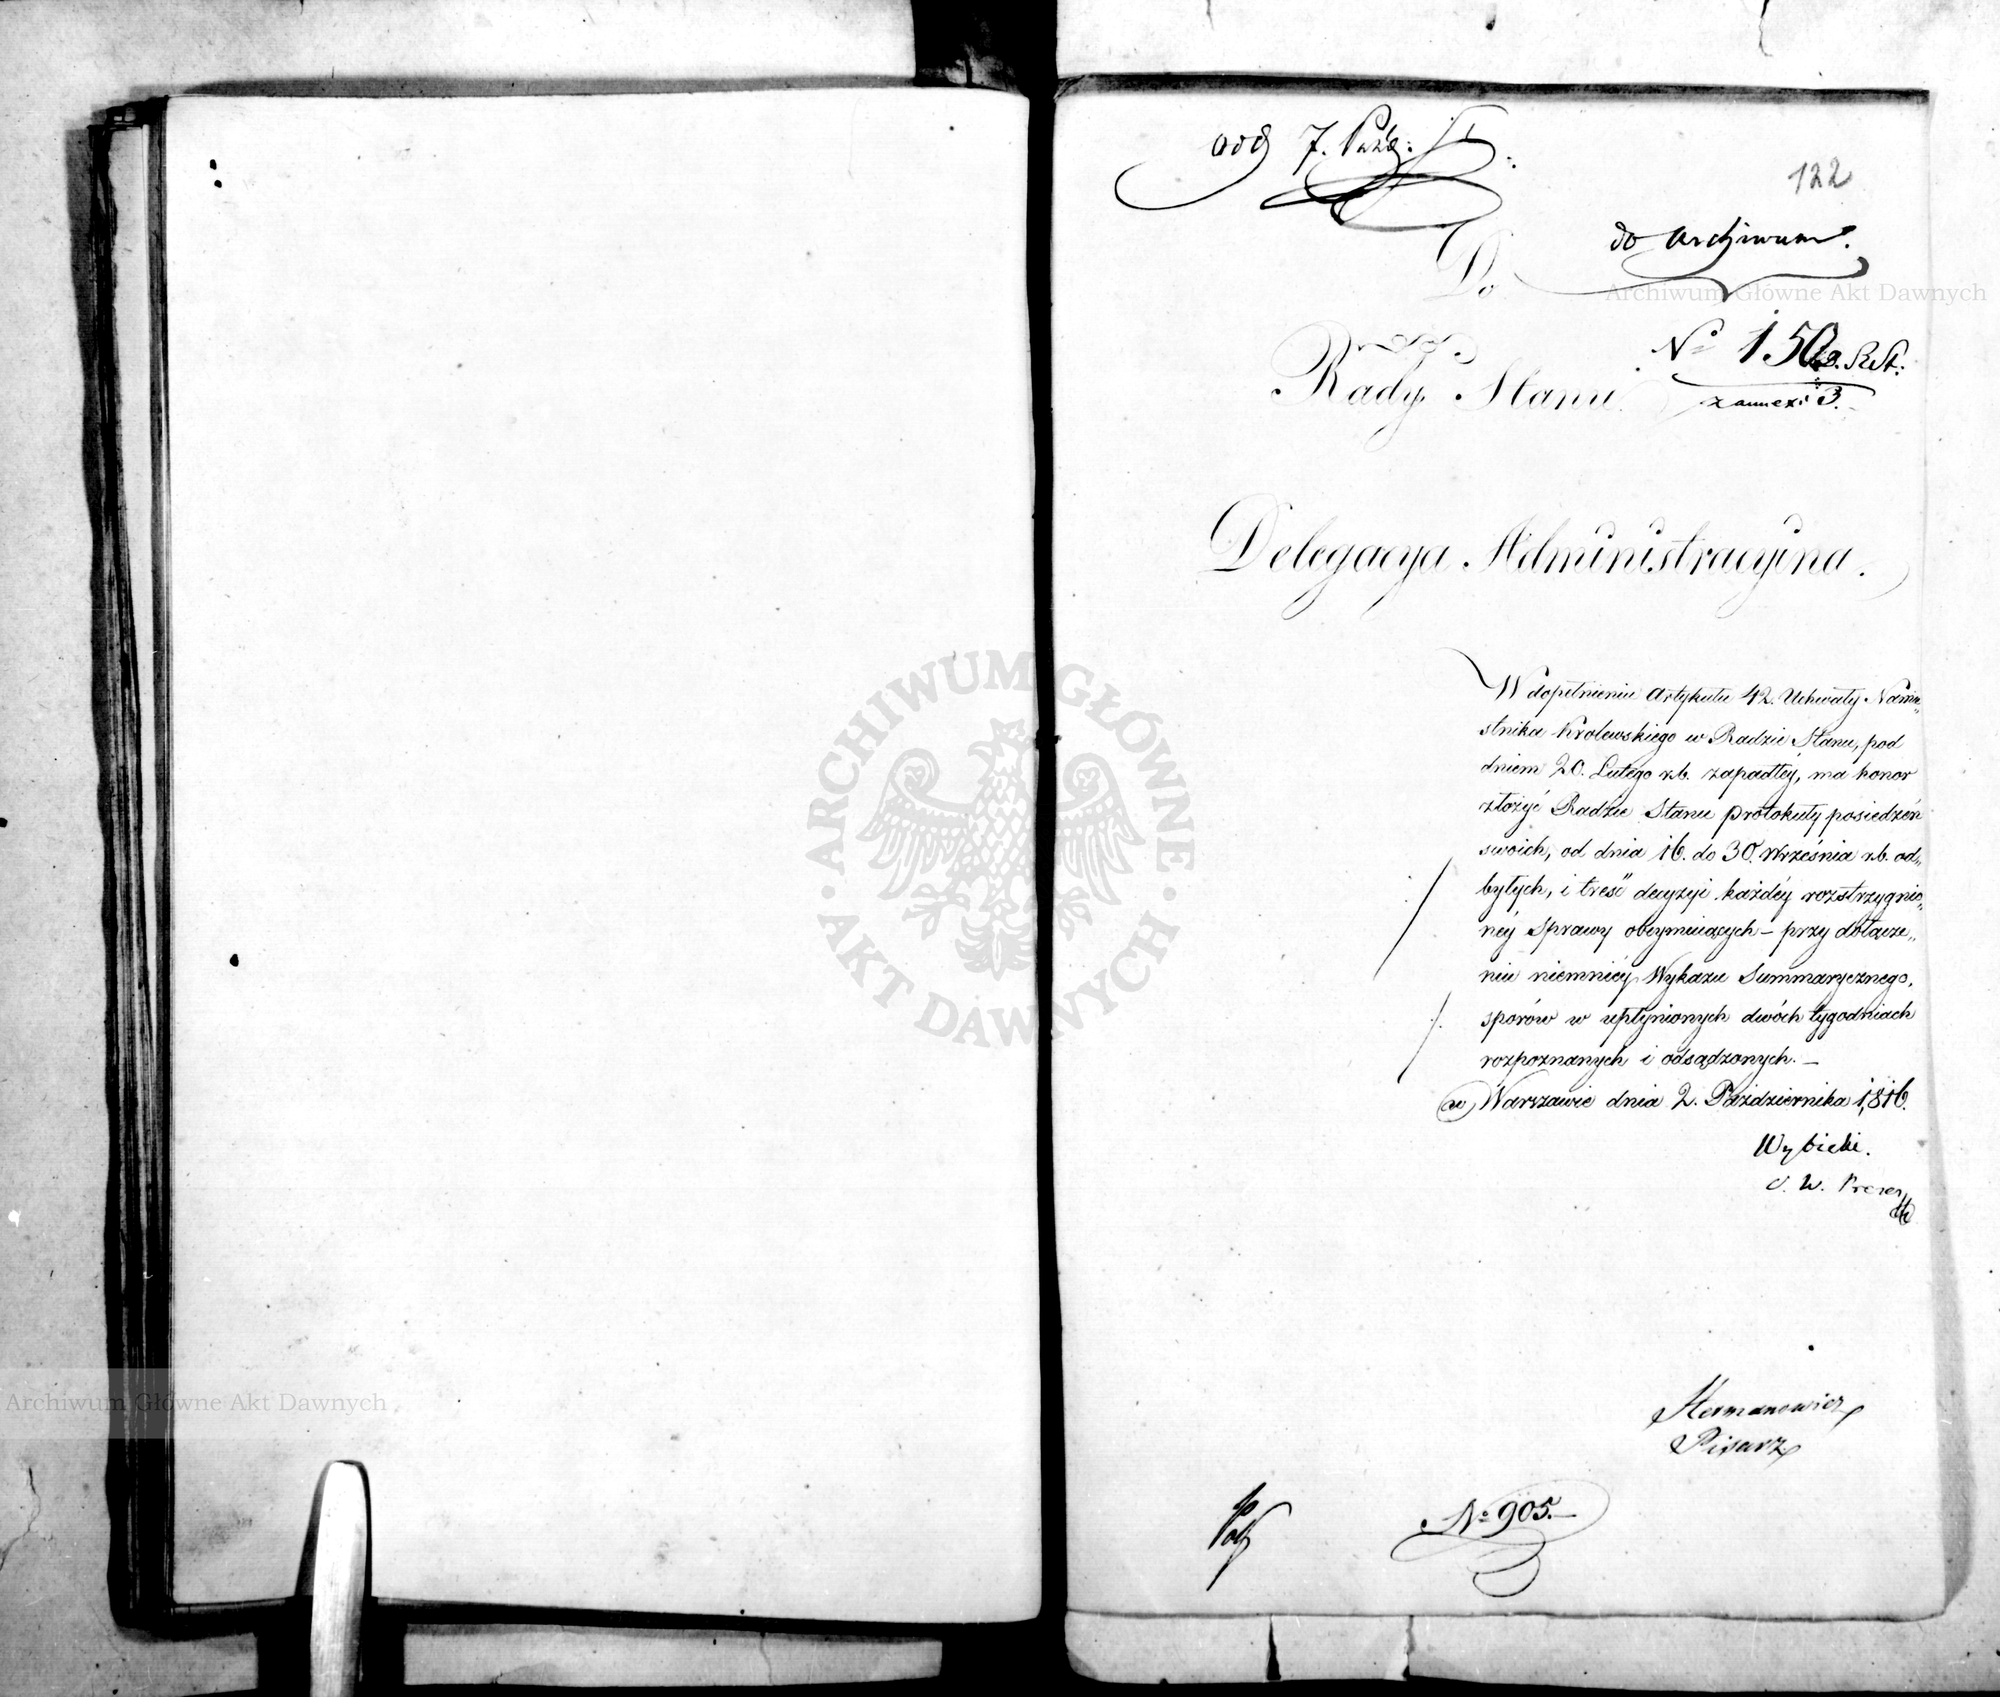 odd 7. Paźdz:
122
do Archiwum.
Do
Rady Stanu.
No 150
z annexi 3.
Delegacya Administracyina.
W dopełnieniu Artykułu 42. Uchwały Namie„
stnika Krolewskiego w Radzie Stanu, pod
dniem 20. Lutego r.b. zapadłey, ma honor
złożyć Radzie Stanu protokuły posiedzeń
swoich, od dnia 16. do 30. Września r.b. od„
bytych, i treść decyzyi każdéy rozstrzygnio„
néy sprawy obeymuiących – przy dołącze„
niu niemniéy Wykazu Summarycznego,
sporów w upłynionych dwóch tygodniach
rozpoznanych i odsądzonych. –
w Warszawie dnia 2. Października 1816.
Wybicki.
S. W. Prezes
Hermanowicz
Pisarz
No 905.–
ARCHIWUM GŁÓWNE
AKT DAWNYCH
Archiwum Główne Akt Dawnych
Archiwum Główne Akt Dawnych